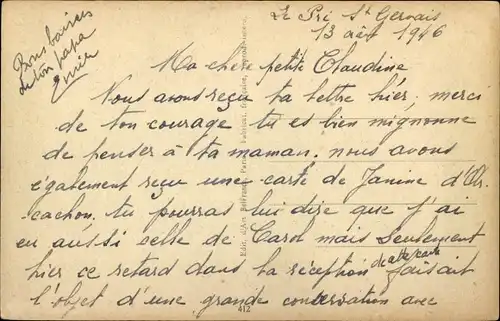 Le Pré St Gervais
13 août 1946
Bons baisers
de ton papa
Ma chère petite Claudine
Nous avons reçu ta lettre hier, merci
de ton courage tu es bien mignonne
de penser à ta maman. nous avons
également reçu une carte de Janine d'Ar.
cachon, tu pourras lui dire que j'ai
eu aussi celle de Carol mais seulement
hier ce retard dans la réception de cette carte faisait
l'objet d'une grande conversation avec
412